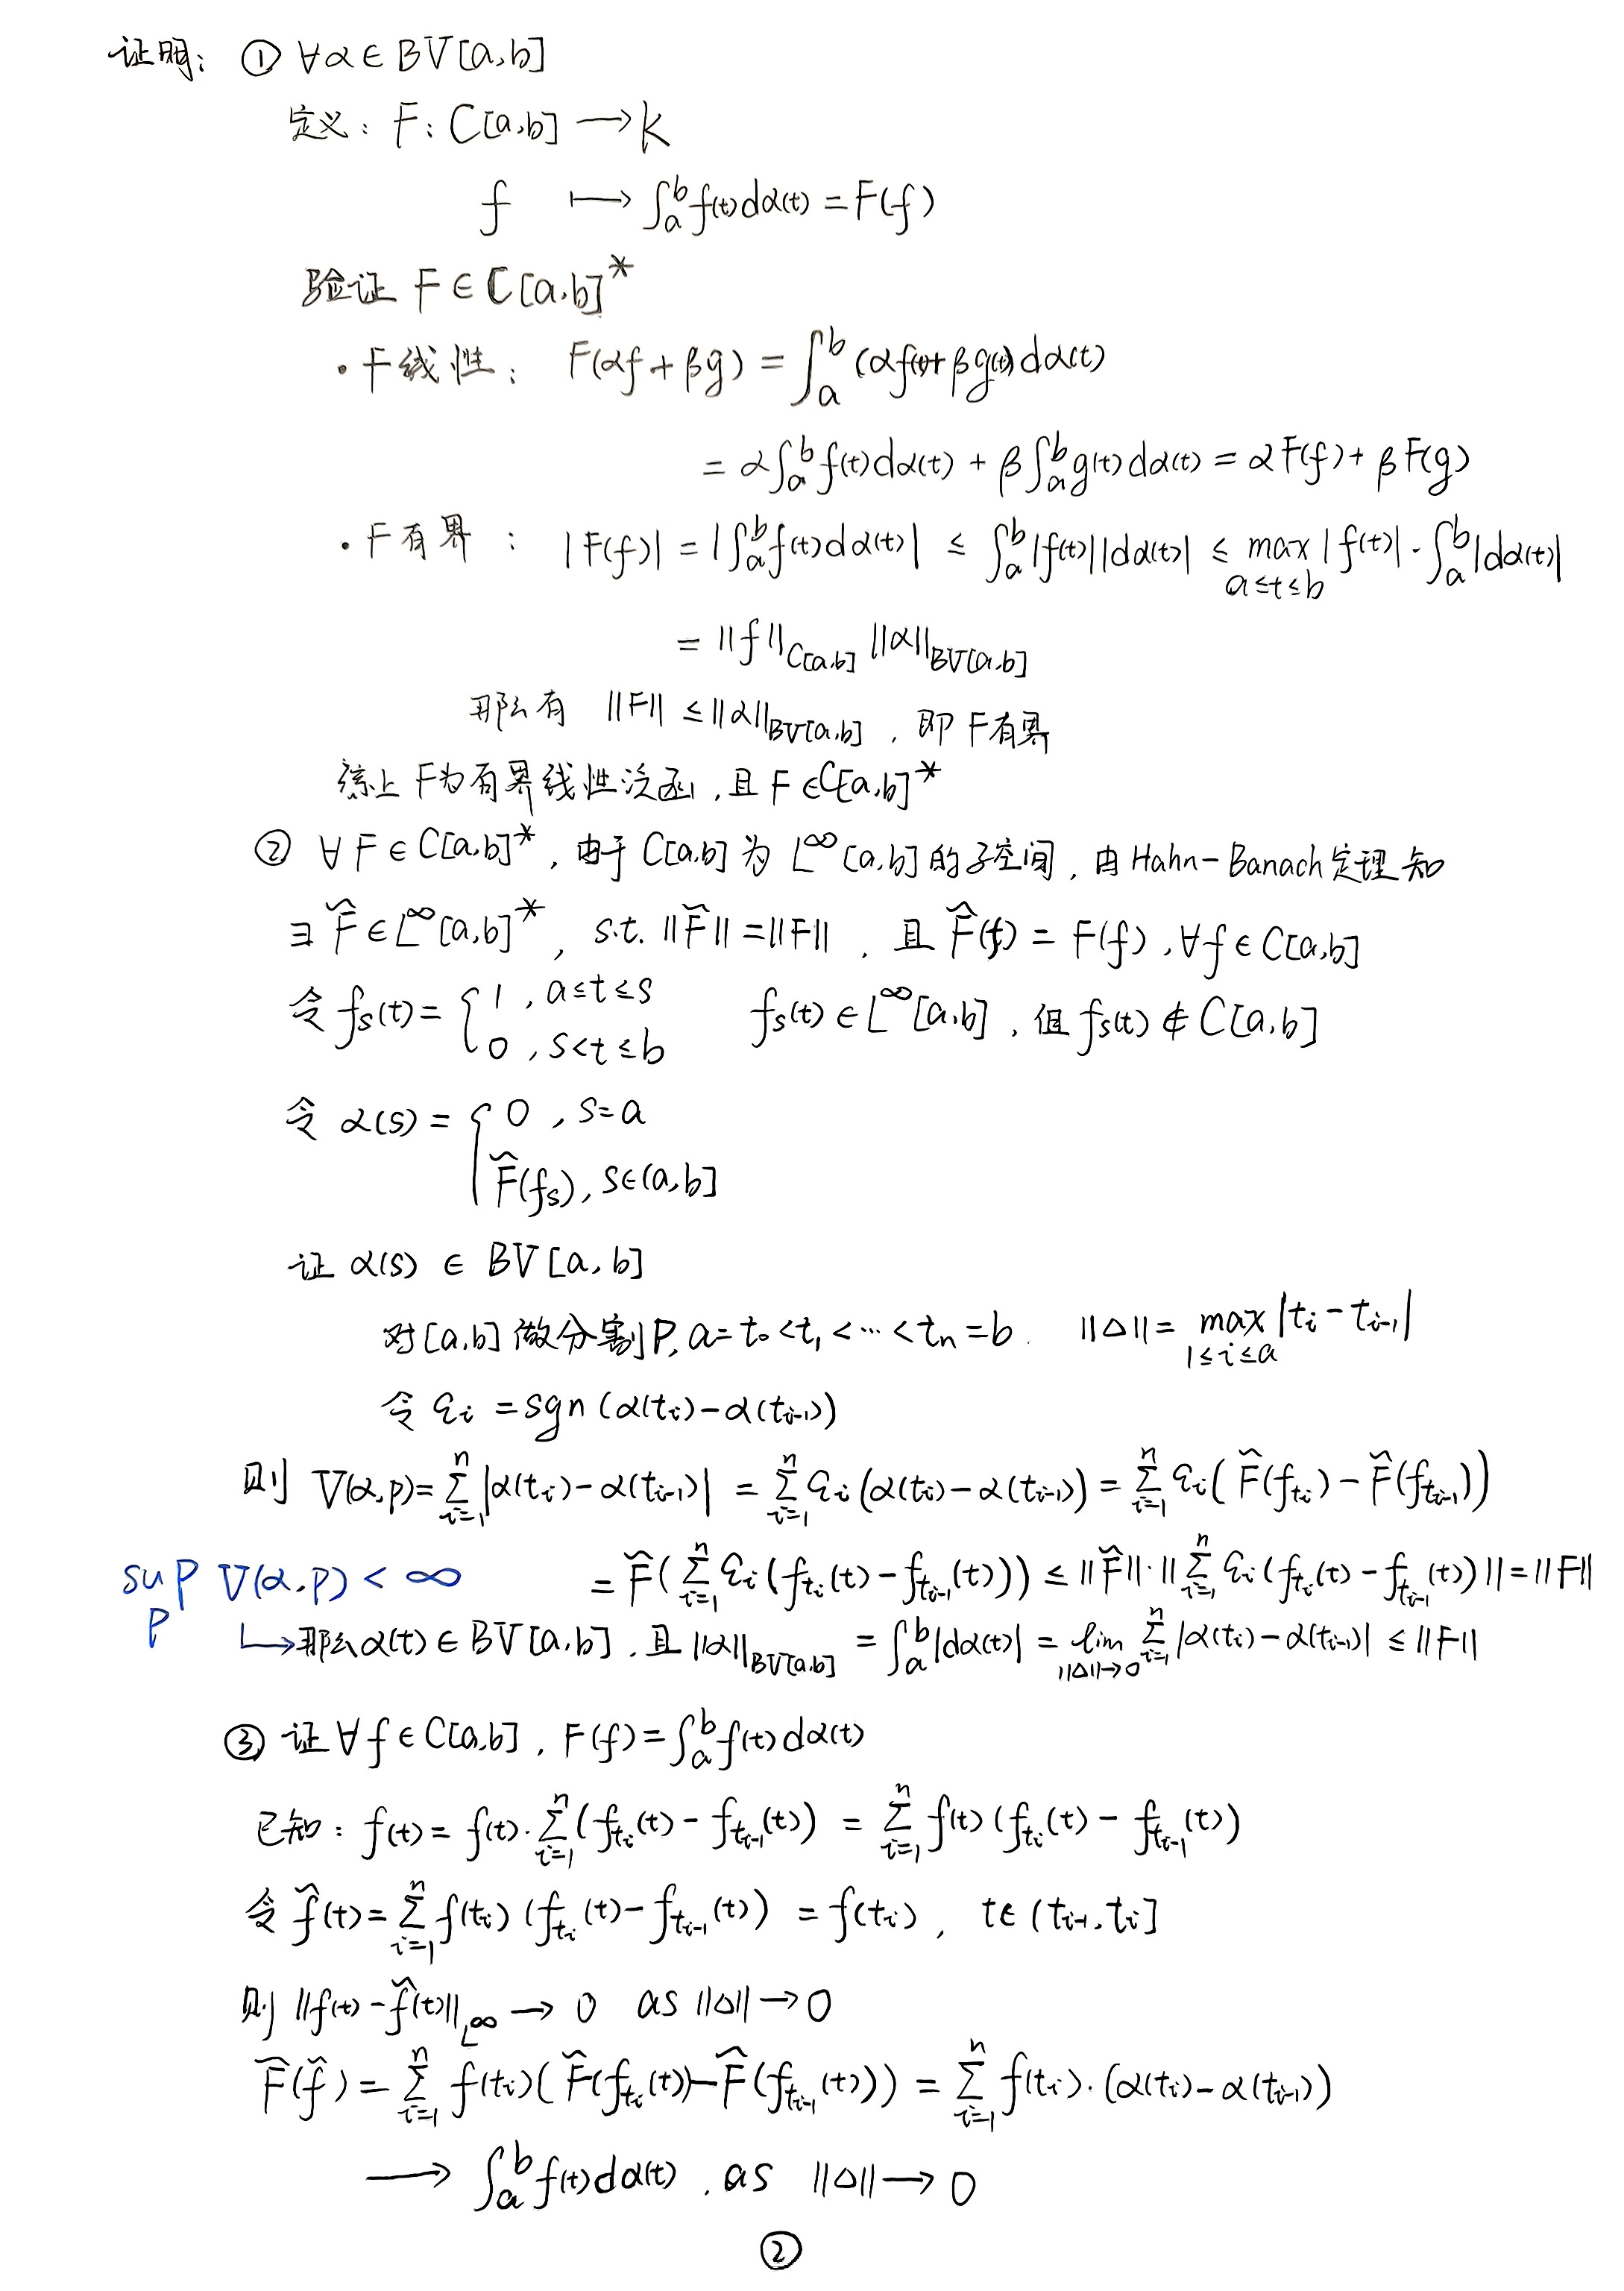 证明: ① ∀α∈BV[a,b]
定义: F: C[a,b] ⟶ k
f ⟼ ∫_a^b f(t)dα(t) = F(f)
验证 F∈C[a,b]*
· F线性: F(αf+βg) = ∫_a^b (αf(t)+βg(t))dα(t)
= α∫_a^b f(t)dα(t) + β∫_a^b g(t)dα(t) = αF(f)+βF(g)
· F有界: |F(f)| = |∫_a^b f(t)dα(t)| ≤ ∫_a^b |f(t)||dα(t)| ≤ max_{a≤t≤b} |f(t)|·∫_a^b |dα(t)|
= ||f||_{C[a,b]} ||α||_{BV[a,b]}
那么有 ||F|| ≤ ||α||_{BV[a,b]}, 即F有界
综上F为有界线性泛函, 且F∈C[a,b]*
② ∀F∈C[a,b]*, 由于C[a,b]为L^∞[a,b]的子空间, 由Hahn-Banach定理知
∃ F̃∈L^∞[a,b]*, s.t. ||F̃||=||F||, 且 F̃(f) = F(f), ∀f∈C[a,b]
令 f_s(t) = { 1, a≤t≤s ; 0, s<t≤b f_s(t)∈L^∞[a,b], 但 f_s(t)∉C[a,b]
令 α(s) = { 0, s=a
F̃(f_s), s∈(a,b]
证 α(s) ∈ BV[a,b]
对[a,b]做分割P, a=t_0<t_1<⋯<t_n=b. ||Δ|| = max_{1≤i≤a} |t_i-t_{i-1}|
令 ε_i = sgn(α(t_i)-α(t_{i-1}))
则 V(α,p) = Σ_{i=1}^n |α(t_i)-α(t_{i-1})| = Σ_{i=1}^n ε_i(α(t_i)-α(t_{i-1})) = Σ_{i=1}^n ε_i(F̃(f_{t_i})-F̃(f_{t_{i-1}}))
sup_P V(α,p) < ∞ = F̃(Σ_{i=1}^n ε_i(f_{t_i}(t)-f_{t_{i-1}}(t))) ≤ ||F̃||·||Σ_{i=1}^n ε_i(f_{t_i}(t)-f_{t_{i-1}}(t))|| = ||F||
↳ 那么α(t)∈BV[a,b], 且 ||α||_{BV[a,b]} = ∫_a^b |dα(t)| = lim_{||Δ||→0} Σ_{i=1}^n |α(t_i)-α(t_{i-1})| ≤ ||F||
③ 证 ∀f∈C[a,b], F(f) = ∫_a^b f(t)dα(t)
已知: f(t) = f(t)·Σ_{i=1}^n (f_{t_i}(t)-f_{t_{i-1}}(t)) = Σ_{i=1}^n f(t)(f_{t_i}(t)-f_{t_{i-1}}(t))
令 f̃(t) = Σ_{i=1}^n f(t_i)(f_{t_i}(t)-f_{t_{i-1}}(t)) = f(t_i), t∈(t_{i-1},t_i]
则 ||f(t)-f̃(t)||_{L^∞} → 0 as ||Δ||→0
F̃(f̃) = Σ_{i=1}^n f(t_i)(F̃(f_{t_i}(t))-F̃(f_{t_{i-1}}(t))) = Σ_{i=1}^n f(t_i)·(α(t_i)-α(t_{i-1}))
⟶ ∫_a^b f(t)dα(t), as ||Δ||→0
②